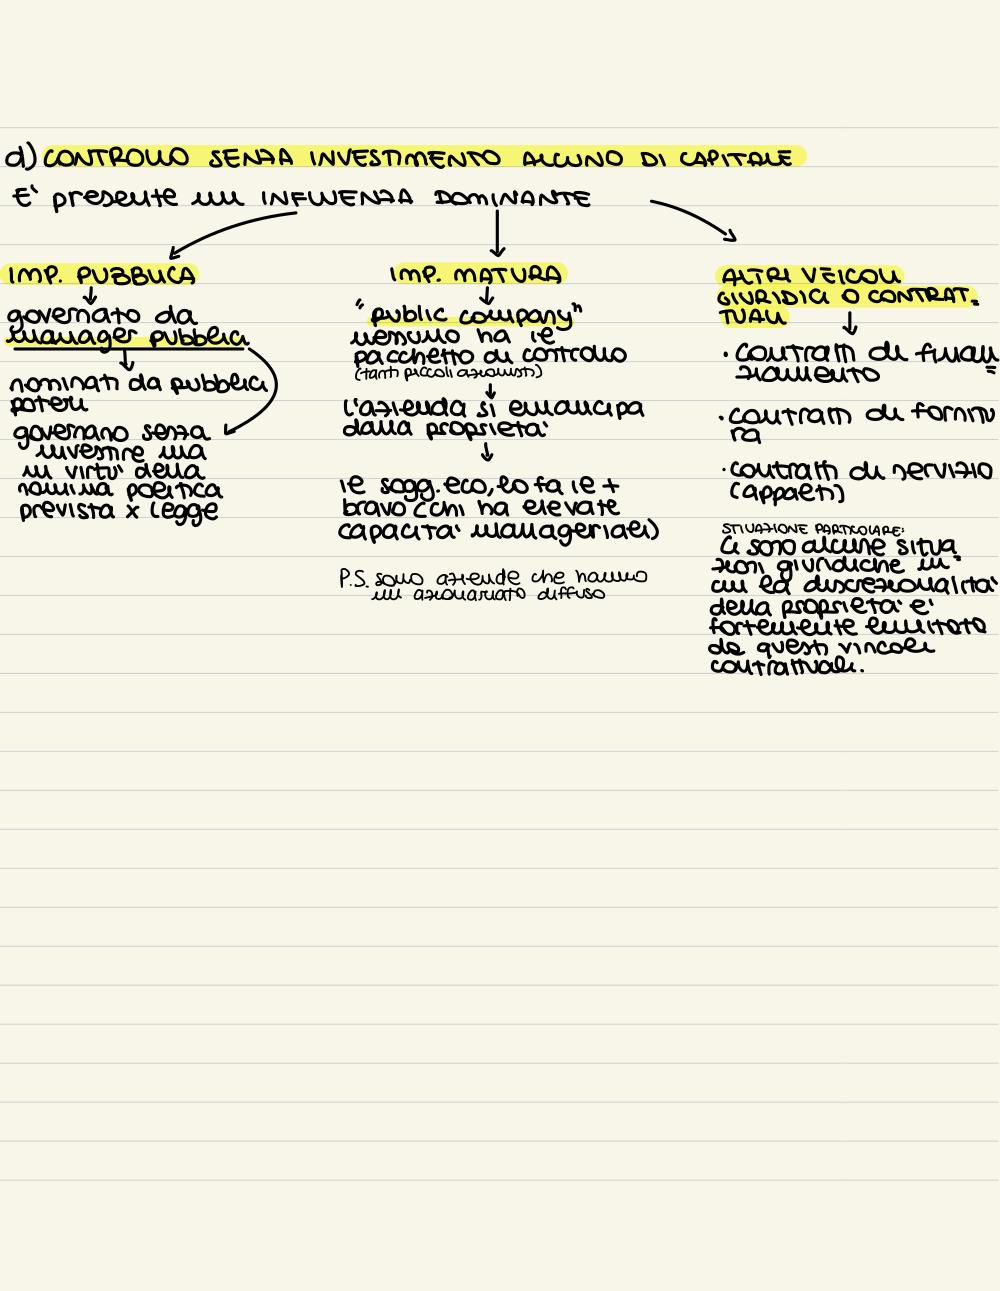 d) CONTROLLO SENZA INVESTIMENTO ALCUNO DI CAPITALE
E' presente un INFLUENZA DOMINANTE
IMP. PUBBLICA
governato da
manager pubblici
nominati da pubblici
poteri
governano senza
investire ma
in virtù della
nomina politica
prevista x legge
IMP. MATURA
"public company"
nessuno ha il
pacchetto di controllo
(tanti piccoli azionisti)
l'azienda si emancipa
dalla proprietà
il sogg. eco, lo fa il +
bravo (chi ha elevate
capacità manageriali)
P.S. sono aziende che hanno
un azionariato diffuso
ALTRI VEICOLI
GIURIDICI O CONTRAT=
TUALI
· contratti di finan
=
ziamento
· contratti di fornitu
ra
· contratti di servizio
(appalti)
SITUAZIONE PARTICOLARE:
Ci sono alcune situa
zioni giuridiche in
cui la discrezionalità
della proprietà è
fortemente limitata
da questi vincoli
contrattuali.